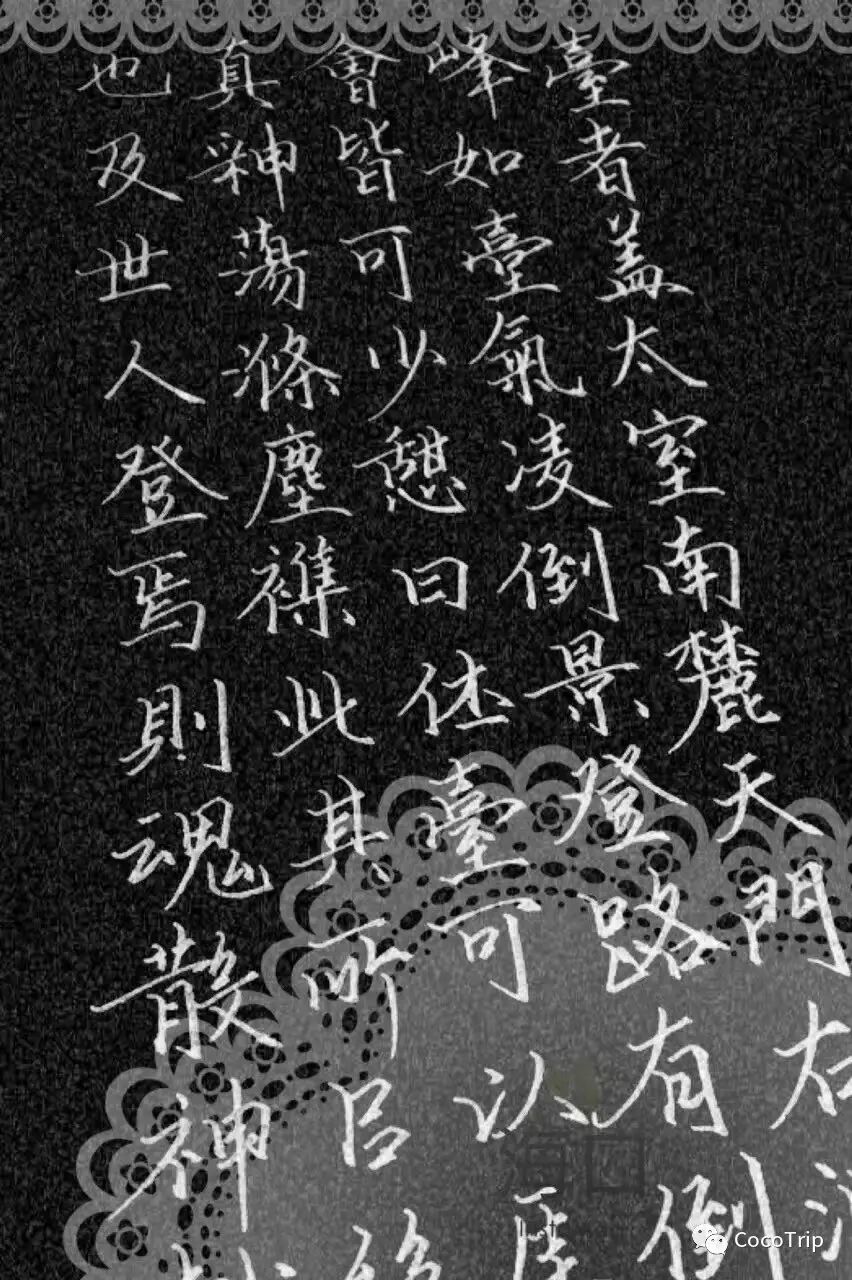 臺者蓋太室南麓天門右
峰如臺氣凌倒景登路有倒
會皆可少憩曰休臺可以
真神蕩滌塵襟此其所
也及世人登焉則魂散神
CocoTrip